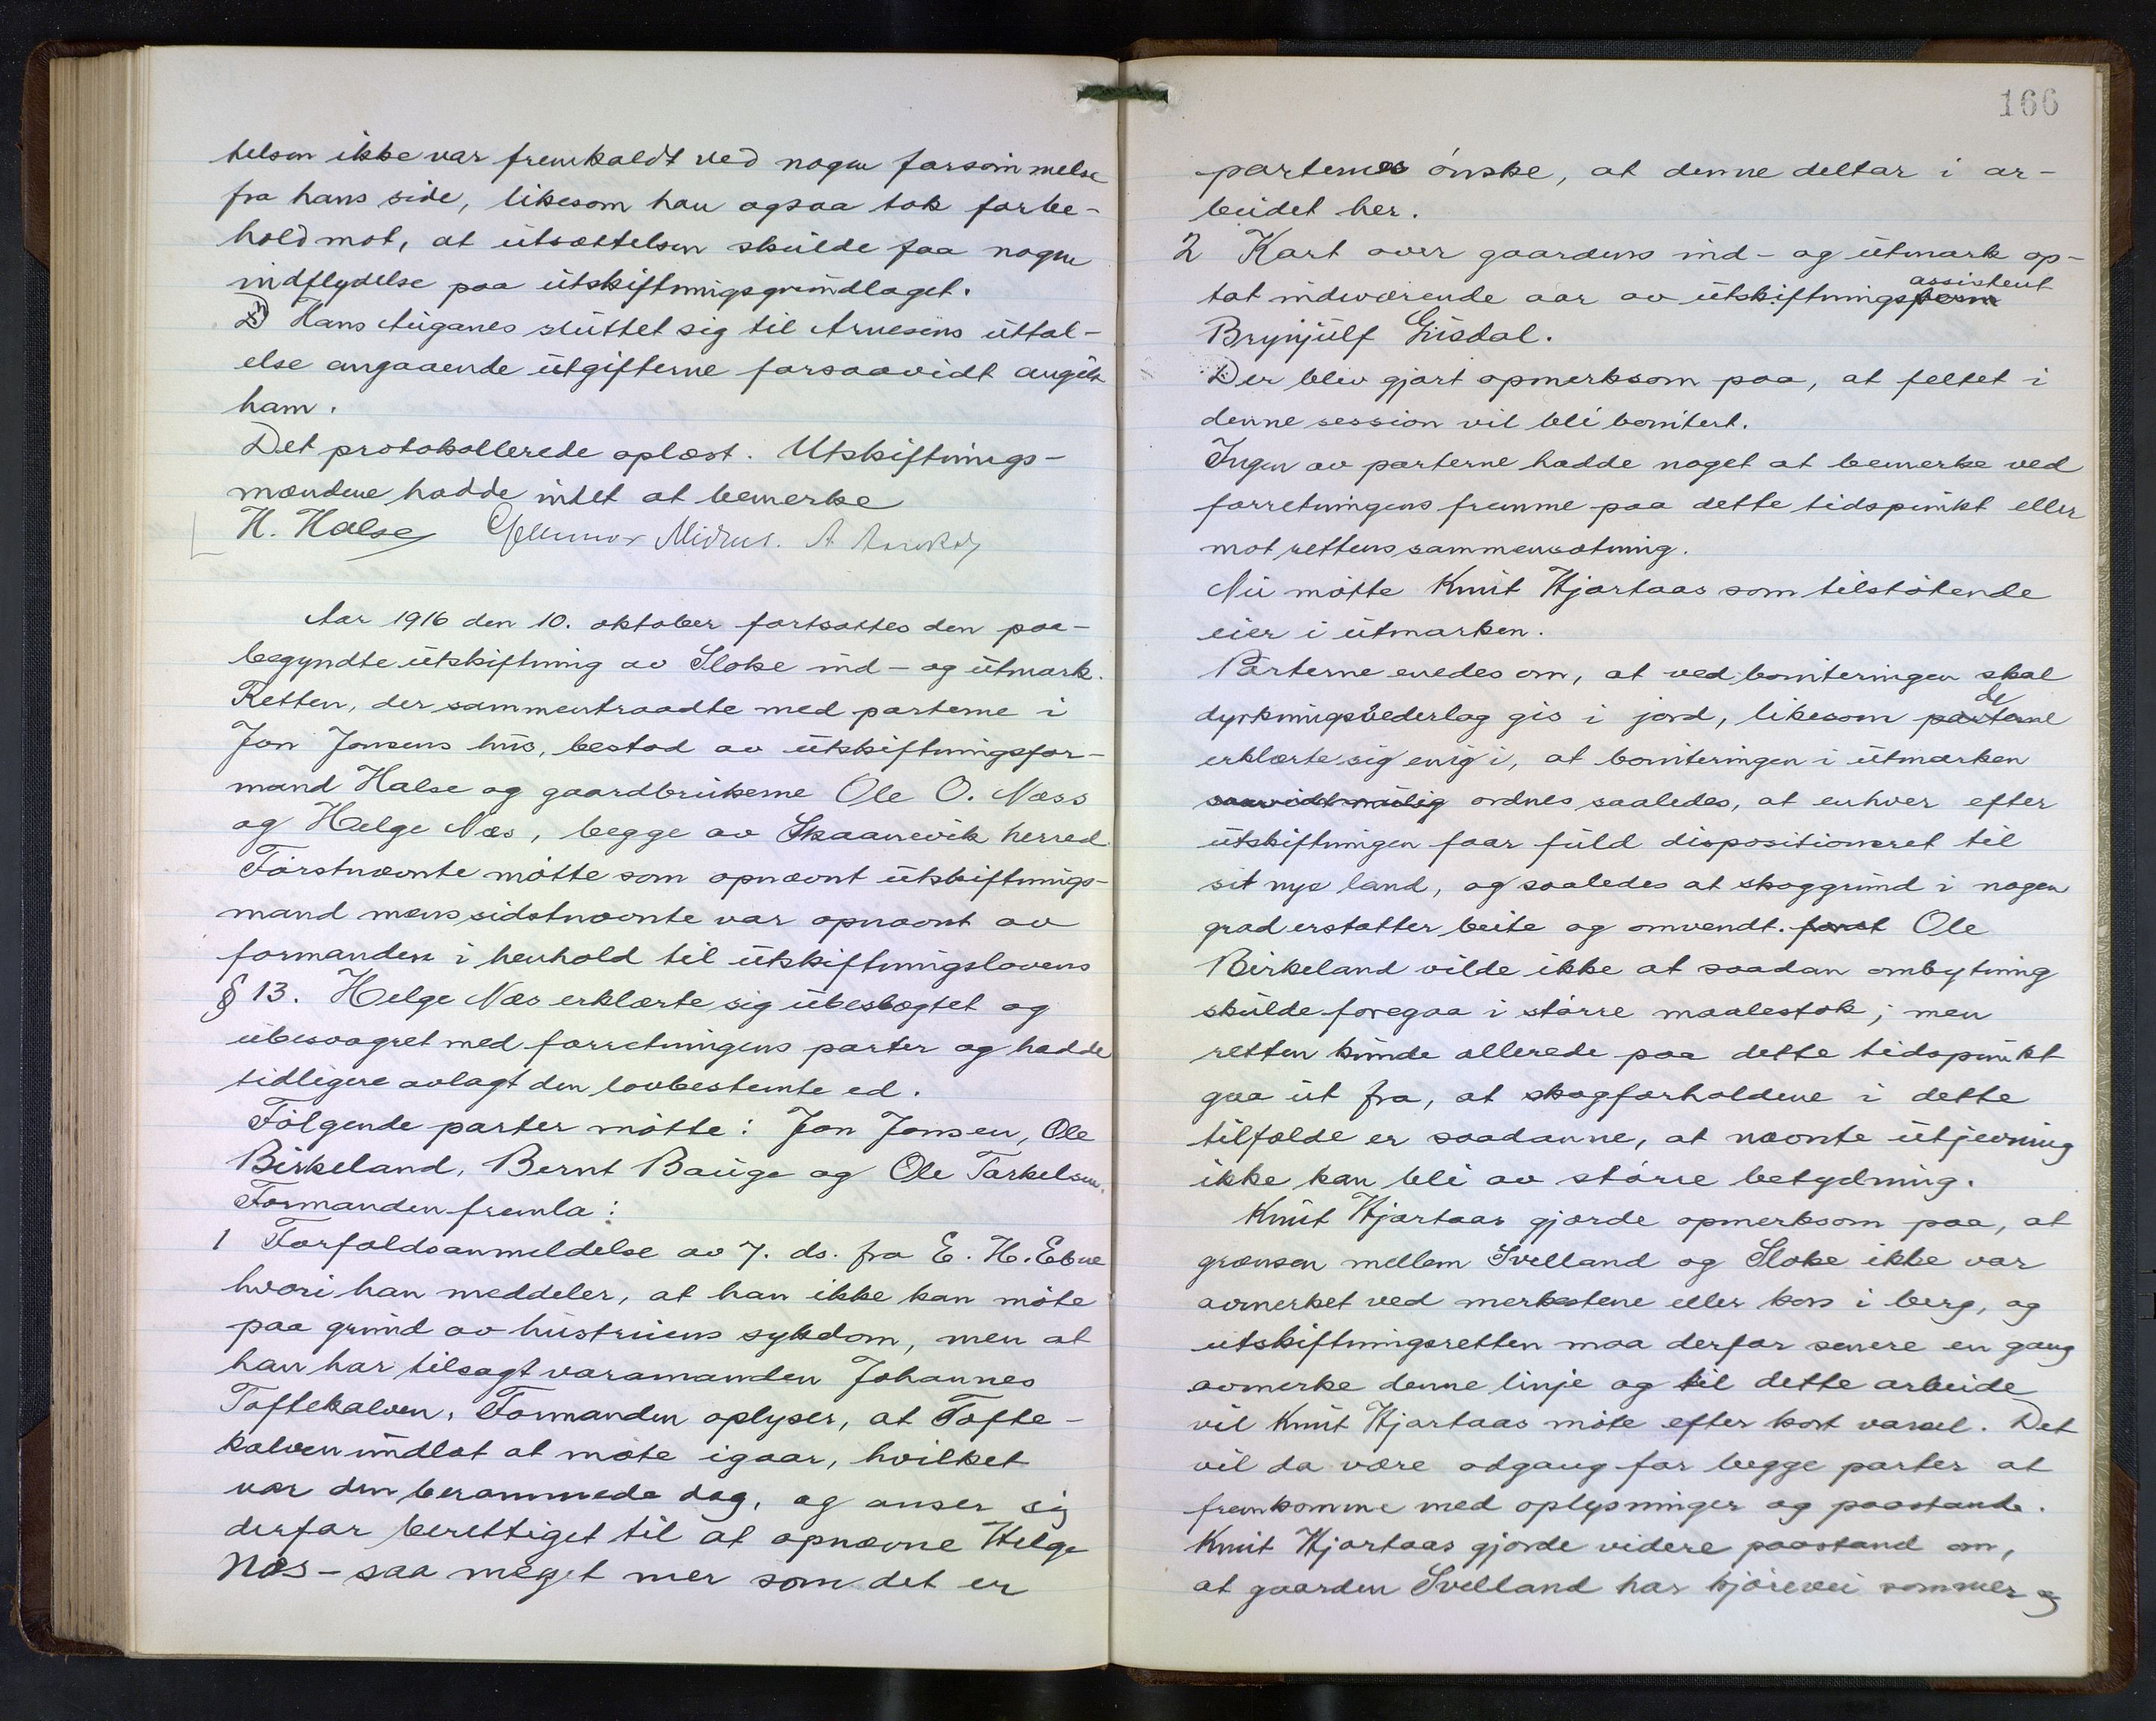 telsen ikke var fremkaldt ved nogen forsømmelse
fra hans side, likesom han ogsaa tok forbe-
hold mot, at utsættelsen skulde faa nogen
indflydelse paa utskiftningsgrundlaget.
Hans Auganes sluttet sig til Arnesens uttal-
else angaaende utgifterne forsaavidt angik
ham.
Det protokollerede oplæst. Utskiftnings-
mændene hadde intet at bemerke
H. Halse
Aar 1916 den 10. oktober fortsattes den paa-
begyndte utskiftning av Sloke ind- og utmark.
Retten, der sammentraadte med parterne i
Jon Jonsens hus, bestod av utskiftningsfor-
mand Halse og gaardbrukerne Ole O. Næss
og Helge Næs, begge av Skaanevik herred.
Førstnævnte møtte som opnævnt utskiftnings-
mand mens sidstnævnte var opnævnt av
formanden i henhold til utskiftningslovens
§ 13. Helge Næs erklærte sig ubeslegtet og
ubesvogret med forretningens parter og hadde
tidligere avlagt den lovbestemte ed.
Følgende parter møtte: Jon Jonsen, Ole
Birkeland, Bernt Bauge og Ole Torkelsen.
Formanden fremla:
1 Forfaldsanmeldelse av 7. ds. fra E. H. Ebne
hvori han meddeler, at han ikke kan møte
paa grund av hustruens sykdom, men at
han har tilsagt varamanden Johannes
Toftekalven. Formanden oplyser, at Tofte-
kalven undlot at møte igaar, hvilket
var den berammede dag, og anser sig
derfor berettiget til at opnævne Helge
Næs - saa meget mer som det er
166
parternes ønske, at denne deltar i ar-
beidet her.
2 Kart over gaardens ind- og utmark op-
assistent
tat indeværende aar av utskiftningsform
Brynjulf Gusdal.
Der blev gjort opmerksom paa, at feltet i
denne session vil bli bonitert.
Ingen av parterne hadde noget at bemerke ved
forretningens fremme paa dette tidspunkt eller
mot rettens sammensætning.
Nu møtte Knut Hjortaas som tilstøtende
eier i utmarken.
Parterne enedes om, at ved boniteringen skal
de
dyrkningsvederlag gis i jord, likesom parterne
erklærte sig enig i, at boniteringen i utmarken
saavidt mulig ordnes saaledes, at enhver efter
utskiftningen faar fuld dispositionsret til
sit nye land, og saaledes at skoggrund i nogen
grad erstatter beite og omvendt. forst Ole
Birkeland vilde ikke at saadan ombytning
skulde foregaa i større maalestok; men
retten kunde allerede paa dette tidspunkt
gaa ut fra, at skogforholdene i dette
tilfælde er saadanne, at nævnte utjevning
ikke kan bli av større betydning.
Knut Hjortaas gjorde opmerksom paa, at
grænsen mellem Svelland og Sloke ikke var
avmerket ved merkestene eller kors i berg, og
utskiftningsretten maa derfor senere en gang
avmerke denne linje og til dette arbeide
vil Knut Hjortaas møte efter kort varsel. Det
vil da være adgang for begge parter at
fremkomme med oplysninger og paastande.
Knut Hjortaas gjorde videre paastand om,
at gaarden Svelland har kjørevei sommer og